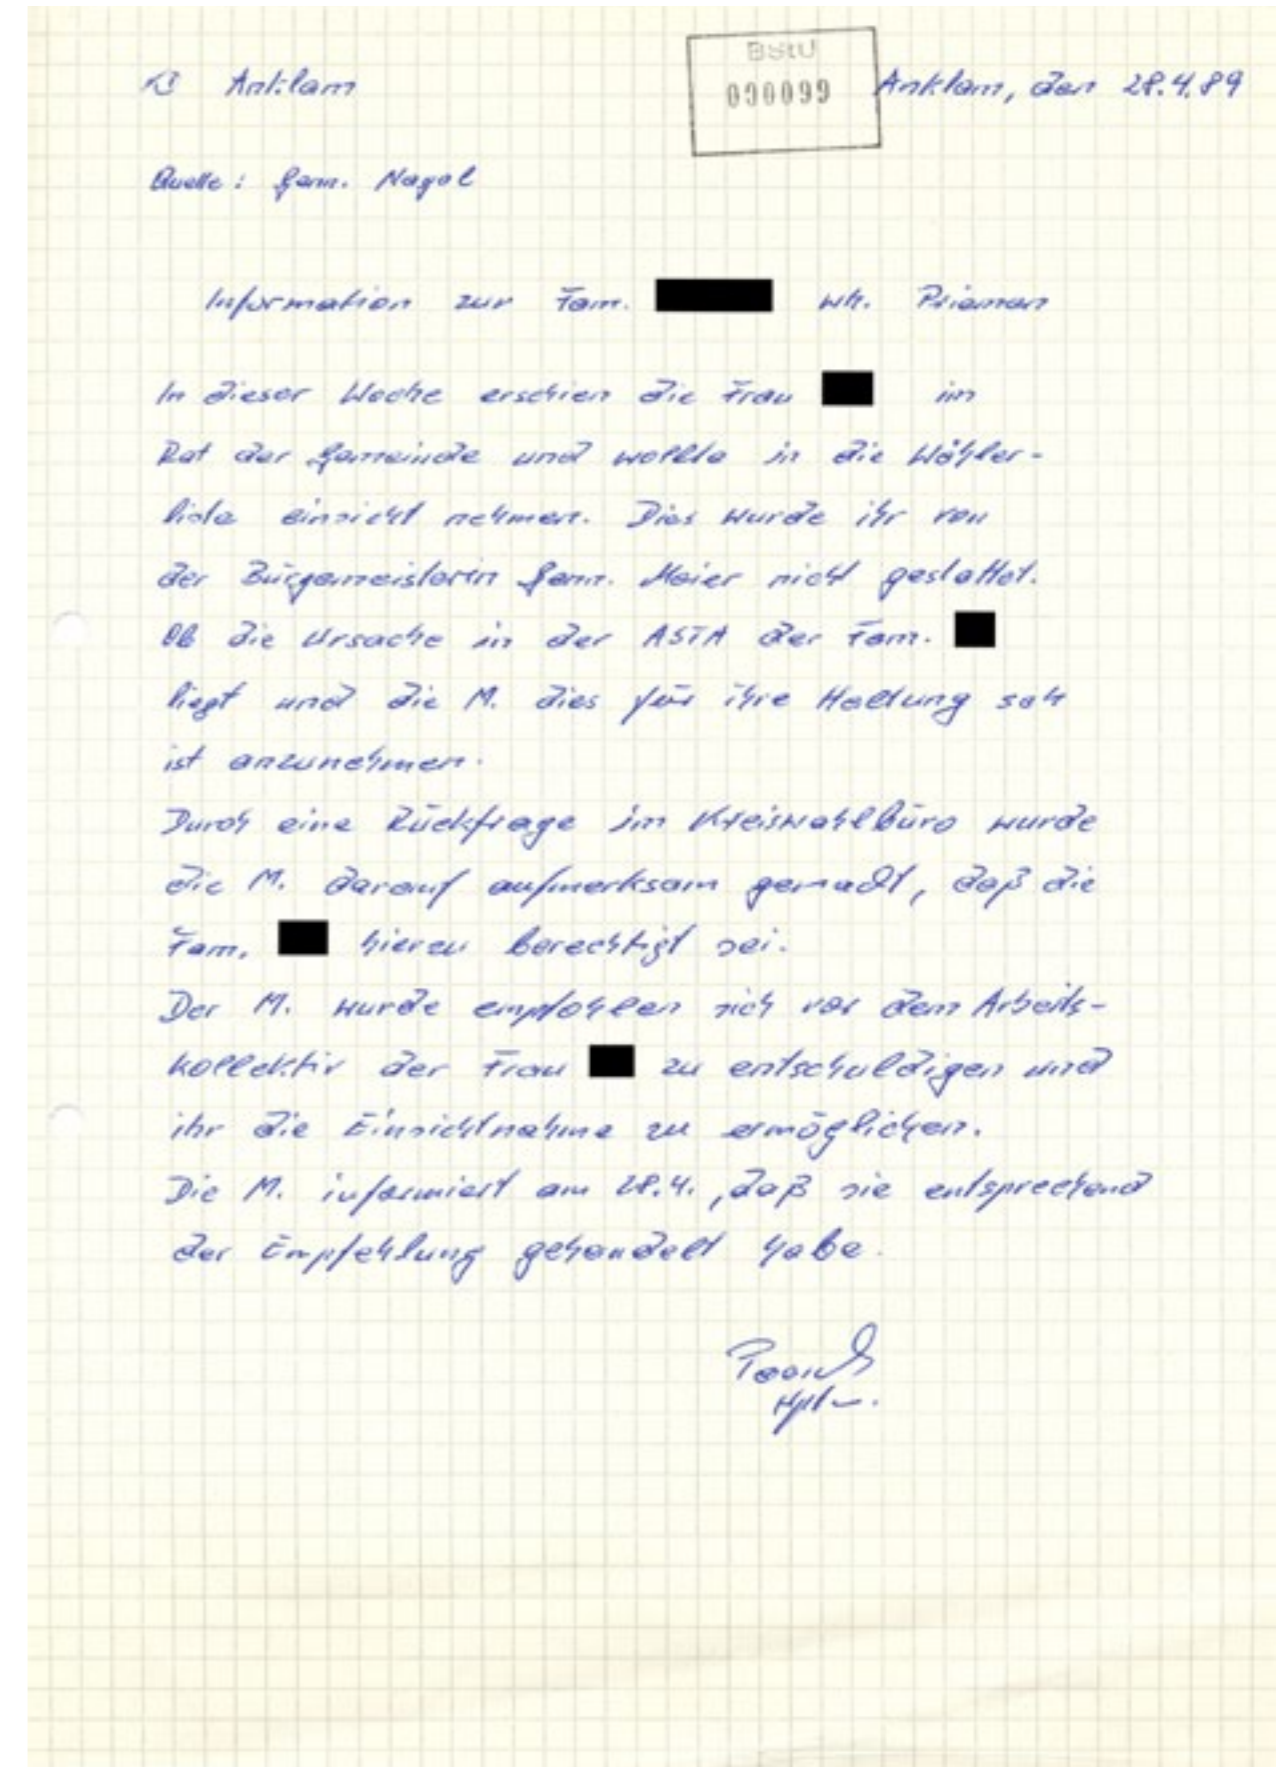 KD Anklam
BStU
000099
Anklam, den 28.4.89
Quelle: Genn. Nagel
Information zur Fam. wh. Priemen
In dieser Woche erschien die Frau im
Rat der Gemeinde und wollte in die Wähler-
liste einsicht nehmen. Dies wurde ihr von
der Bürgermeisterin Genn. Meier nicht gestattet.
Ob die Ursache in der ASTA der Fam.
liegt und die M. dies für ihre Haltung sah
ist anzunehmen.
Durch eine Rückfrage im Kreiswahlbüro wurde
die M. darauf aufmerksam gemacht, daß die
Fam. hierzu berechtigt sei.
Der M. wurde empfohlen sich vor dem Arbeits-
kollektiv der Frau zu entschuldigen und
ihr die Einsichtnahme zu ermöglichen.
Die M. informiert am 28.4., daß sie entsprechend
der Empfehlung gehandelt habe.